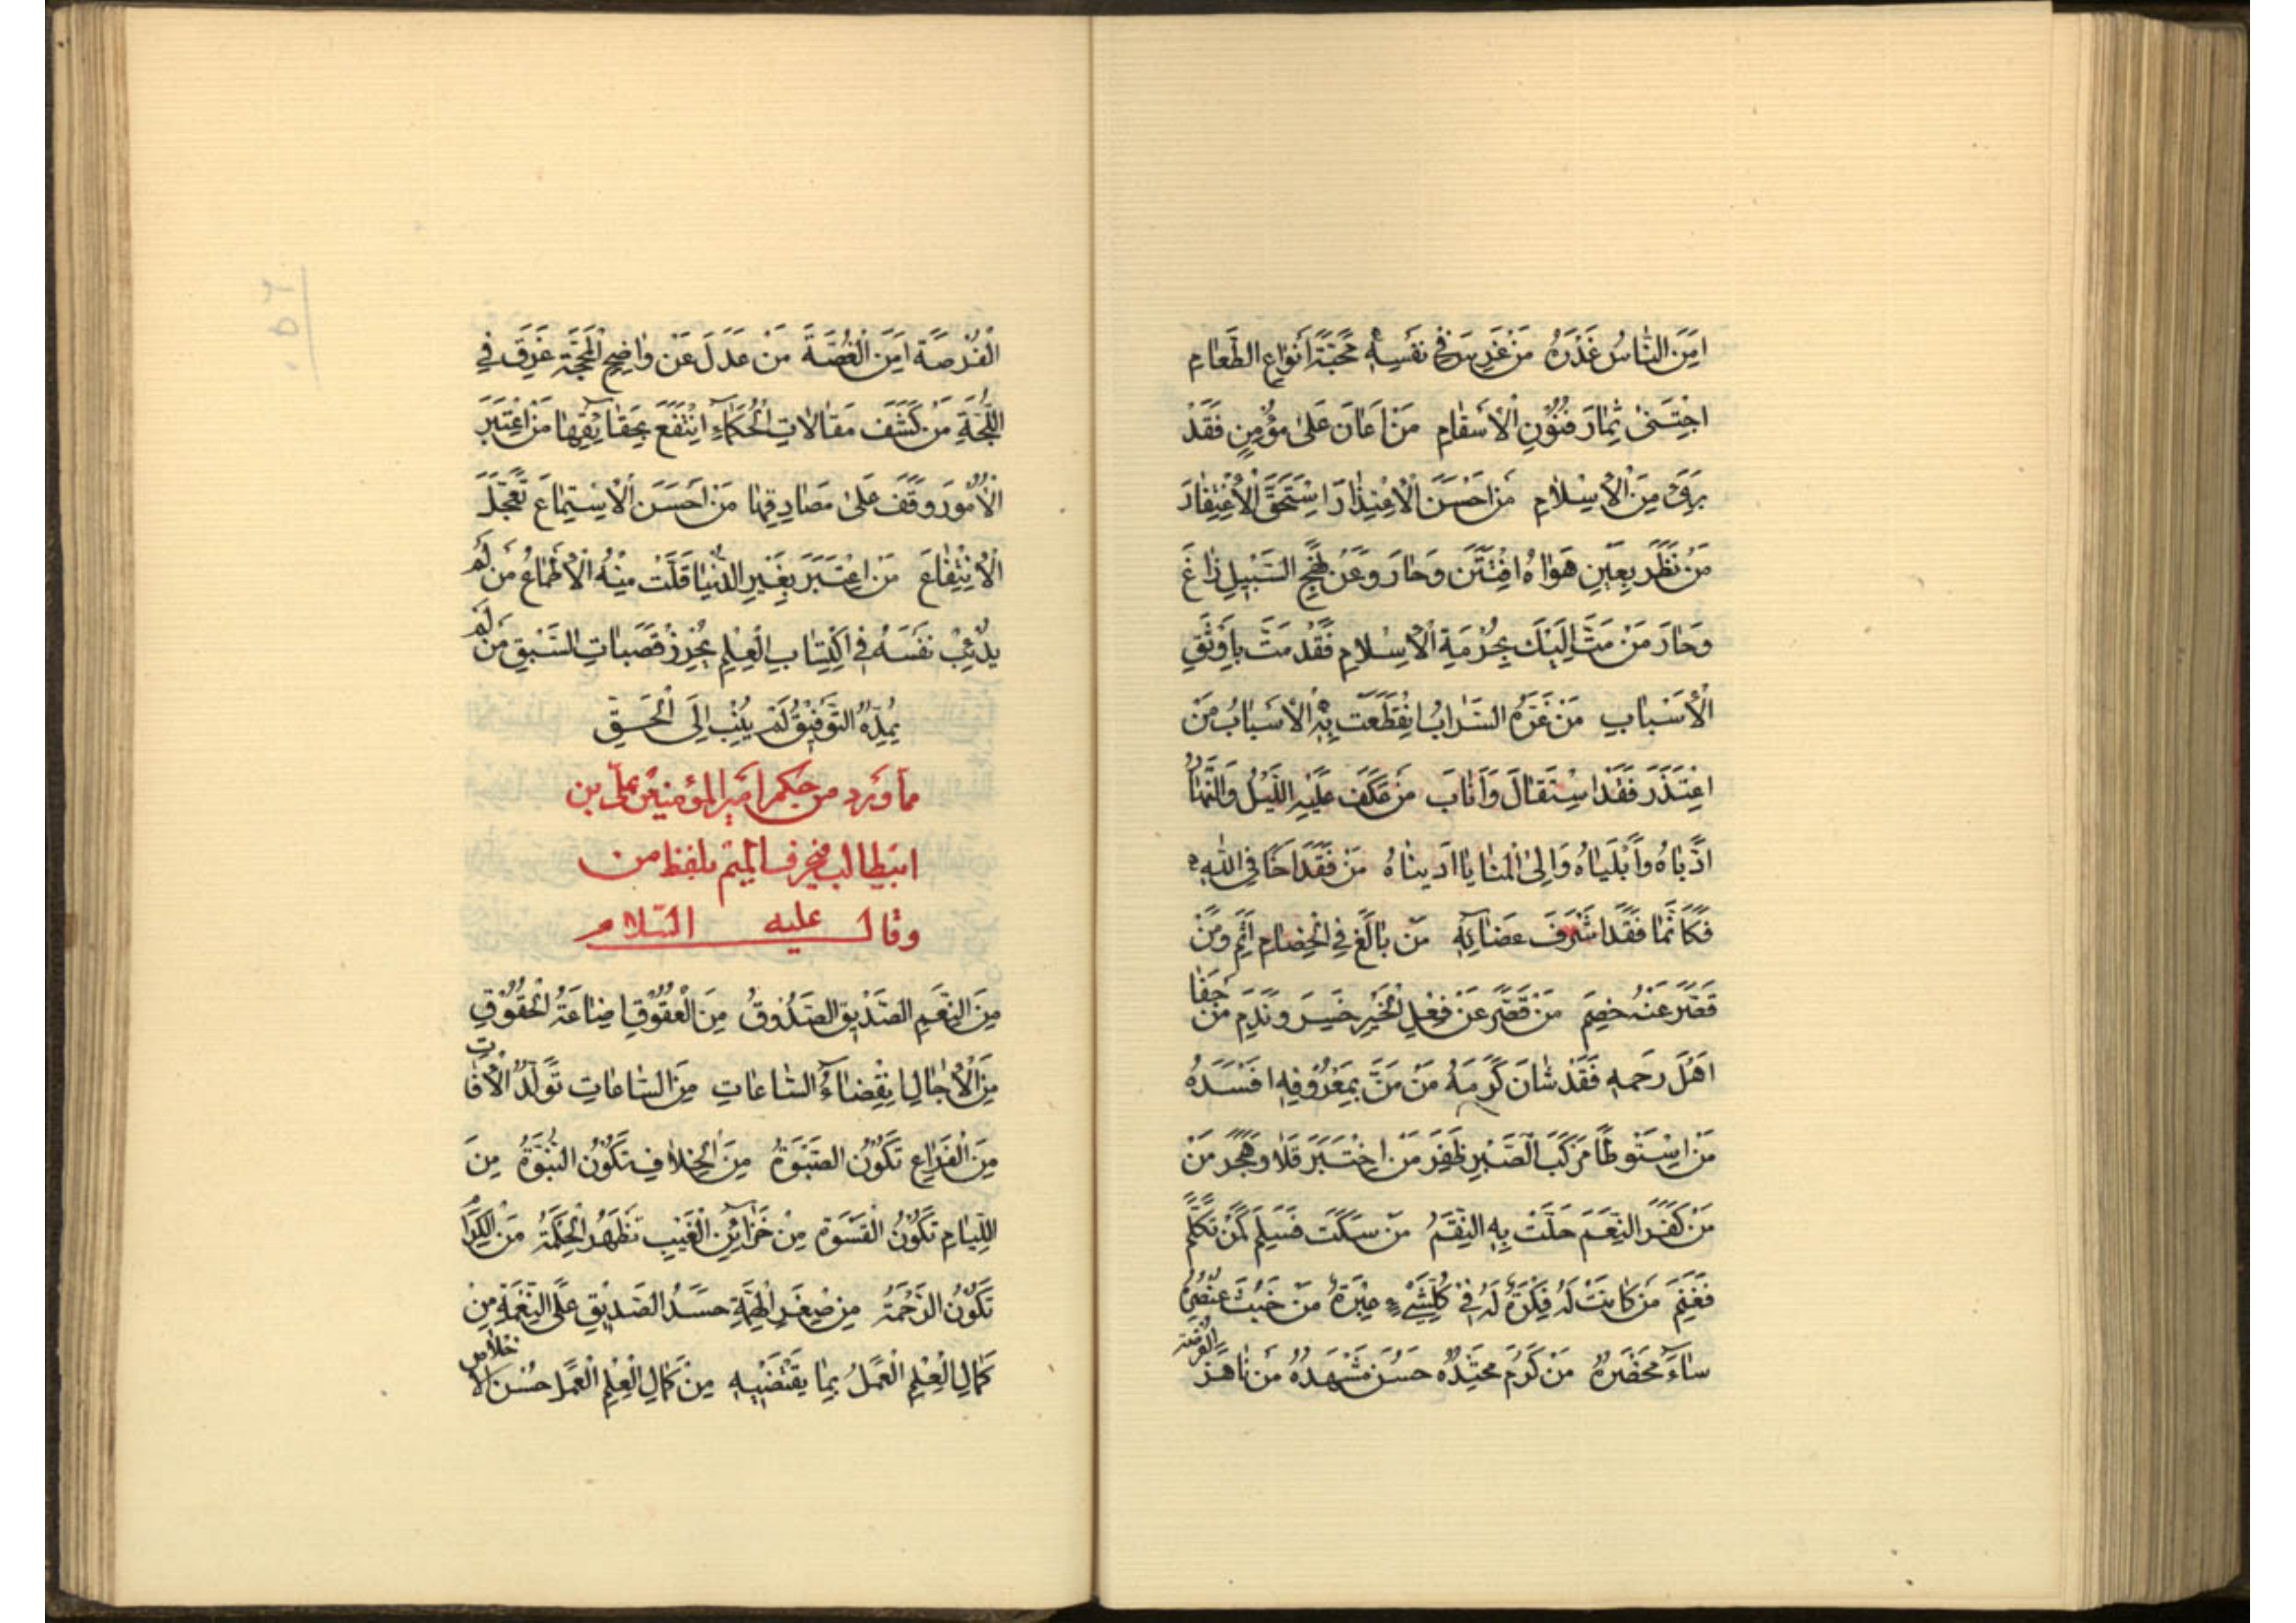 اَمِنَ النّاسُ غَدْرَهُ مَنْ غَرَسَ فى نَفْسِهِ مَحَبَّةَ اَنْواعِ الطَّعامِ
اجْتَنىٰ ثِمارَ فُنُوْنِ الْأَسْقامِ مَنْ اَعانَ عَلىٰ مُؤْمِنٍ فَقَدْ
بَرِىَٔ مِنَ الْاِسْلامِ مَنْ اَحْسَنَ الْاِعْتِذارَ اسْتَحَقَّ الْاِغْتِفارَ
مَنْ نَظَرَ بِعَيْنِ هَواهُ افْتَتَنَ وَحارَ وَعَنْ نَهْجِ السَّبِيْلِ زاغَ
وَحارَ مَنْ مَتَّ اِلَيْكَ بِحُرْمَةِ الْاِسْلامِ فَقَدْ مَتَّ بِاَوْثَقِ
الْأَسْبابِ مَنْ غَرَّهُ السَّرابُ انْقَطَعَتْ بِهِ الْأَسْبابُ مَنْ
اعْتَذَرَ فَقَدْ اسْتَقالَ وَاَنابَ مَنْ عَكَفَ عَلَيْهِ اللَّيْلُ وَالنَّهارُ
اَدَّباهُ وَاَبْلَياهُ وَاِلىٰ الْمَنايا اَدْيناهُ مَنْ فَقَدَ اَخًا فِى اللهِ
فَكَاَنَّما فَقَدَ اَشْرَفَ عَضائِهِ مَنْ بالَغَ فِى الْخِصامِ اَثِمَ وَمَنْ
قَصَّرَ عَنْهُ خُصِمَ مَنْ قَصَّرَ عَنْ فِعْلِ الْخَيْرِ خَسِرَ وَنَدِمَ مَنْ جَفا
اَهْلَ رَحِمِهِ فَقَدْ شانَ كَرَمَهُ مَنْ مَنَّ بِمَعْرُوْفِهِ افْسَدَهُ
مَنِ اسْتَوْطَأَ مَرْكَبَ الصَّبْرِ ظَفِرَ مَنْ اخْتَبَرَ قَلا وَهَجَرَ مَنْ
مَنْ كَفَرَ النِّعَمَ حَلَّتْ بِهِ النِّقَمُ مَنْ سَكَتَ فَسَلِمَ كَمَنْ تَكَلَّمَ
فَغَنِمَ مَنْ كانَتْ لَهُ فِكْرَةٌ لَهُ فِىْ كُلِّ شَىْءٍ عِبْرَةٌ مَنْ خَبُثَ عُنْصُرُهُ
ساءَ مَحْضَرُهُ مَنْ كَرُمَ مَحْتِدُهُ حَسُنَ مَشْهَدُهُ مَنْ ناهَزَ الفرصة
الْفُرْصَةَ اَمِنَ الْغُصَّةَ مَنْ عَدَلَ عَنْ واضِحِ الْمَحَجَّةِ غَرِقَ فِى
اللُّجَّةِ مَنْ كَشَفَ مَقالاتِ الْحُكَماءِ انْتَفَعَ بِحَقائِقِها مَنْ اعْتَبَرَ
الْأُمُوْرَ وَقَفَ عَلىٰ مَصادِقِها مَنْ اَحْسَنَ الْاِسْتِماعَ تَعَجَّلَ
الْاِنْتِفاعَ مَنْ اعْتَبَرَ بِغَيْرِ الدُّنْيا قَلَّتْ مِنْهُ الْأَطْماعُ مَنْ لَمْ
يُدْئِبْ نَفْسَهُ فِى اكْتِسابِ الْعِلْمِ يُحْرِزْ قَصَباتِ السَّبْقِ مَنْ لَمْ
يُمِدَّهُ التَّوْفِيْقُ لَمْ يُنِبْ اِلَى الْحَقِّ
مما ورد من حكم امير المؤمنين على بن
ابيطالب فى حرف الميم بلفظ من
وقال عليه السلام
مِنَ النِّعَمِ الصَّدِيْقُ الصَّدُوْقُ مِنَ الْعُقُوْقِ اِضاعَةُ الْحُقُوْقِ
مِنَ الْأجالِ انْقِضاءُ السّاعاتِ مِنَ السّاعاتِ تَوَلُّدُ الْأفات
مِنَ الْفَراغِ تَكُوْنُ الصَّبْوَةُ مِنَ الْخِلافِ تَكُوْنُ النَّبْوَةُ مِنَ
اللِّئامِ تَكُوْنُ الْقَسْوَة مِنْ خَزائِنِ الْغَيْبِ تَظْهَرُ الْحِكْمَةُ مِنَ الْكِرامِ
تَكُوْنُ الرَّحْمَةُ مِنْ صِغَرِ الْهِمَّةِ حَسَدُ الصَّدِيْقِ عَلَى النِّعْمَةِ مِنْ
كَمالِ الْعِلْمِ الْعَمَلُ بِما يَقْتَضِيْهِ مِنْ كَمالِ الْعِلْمِ الْعَمَل حُسْنُ الاخلاص